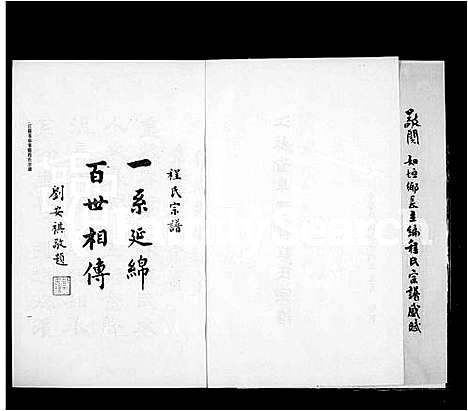 敬閱 知垣鄉長主編程氏宗譜感賦
程氏宗譜
一系延綿
百世相傳
劉安祺敬題